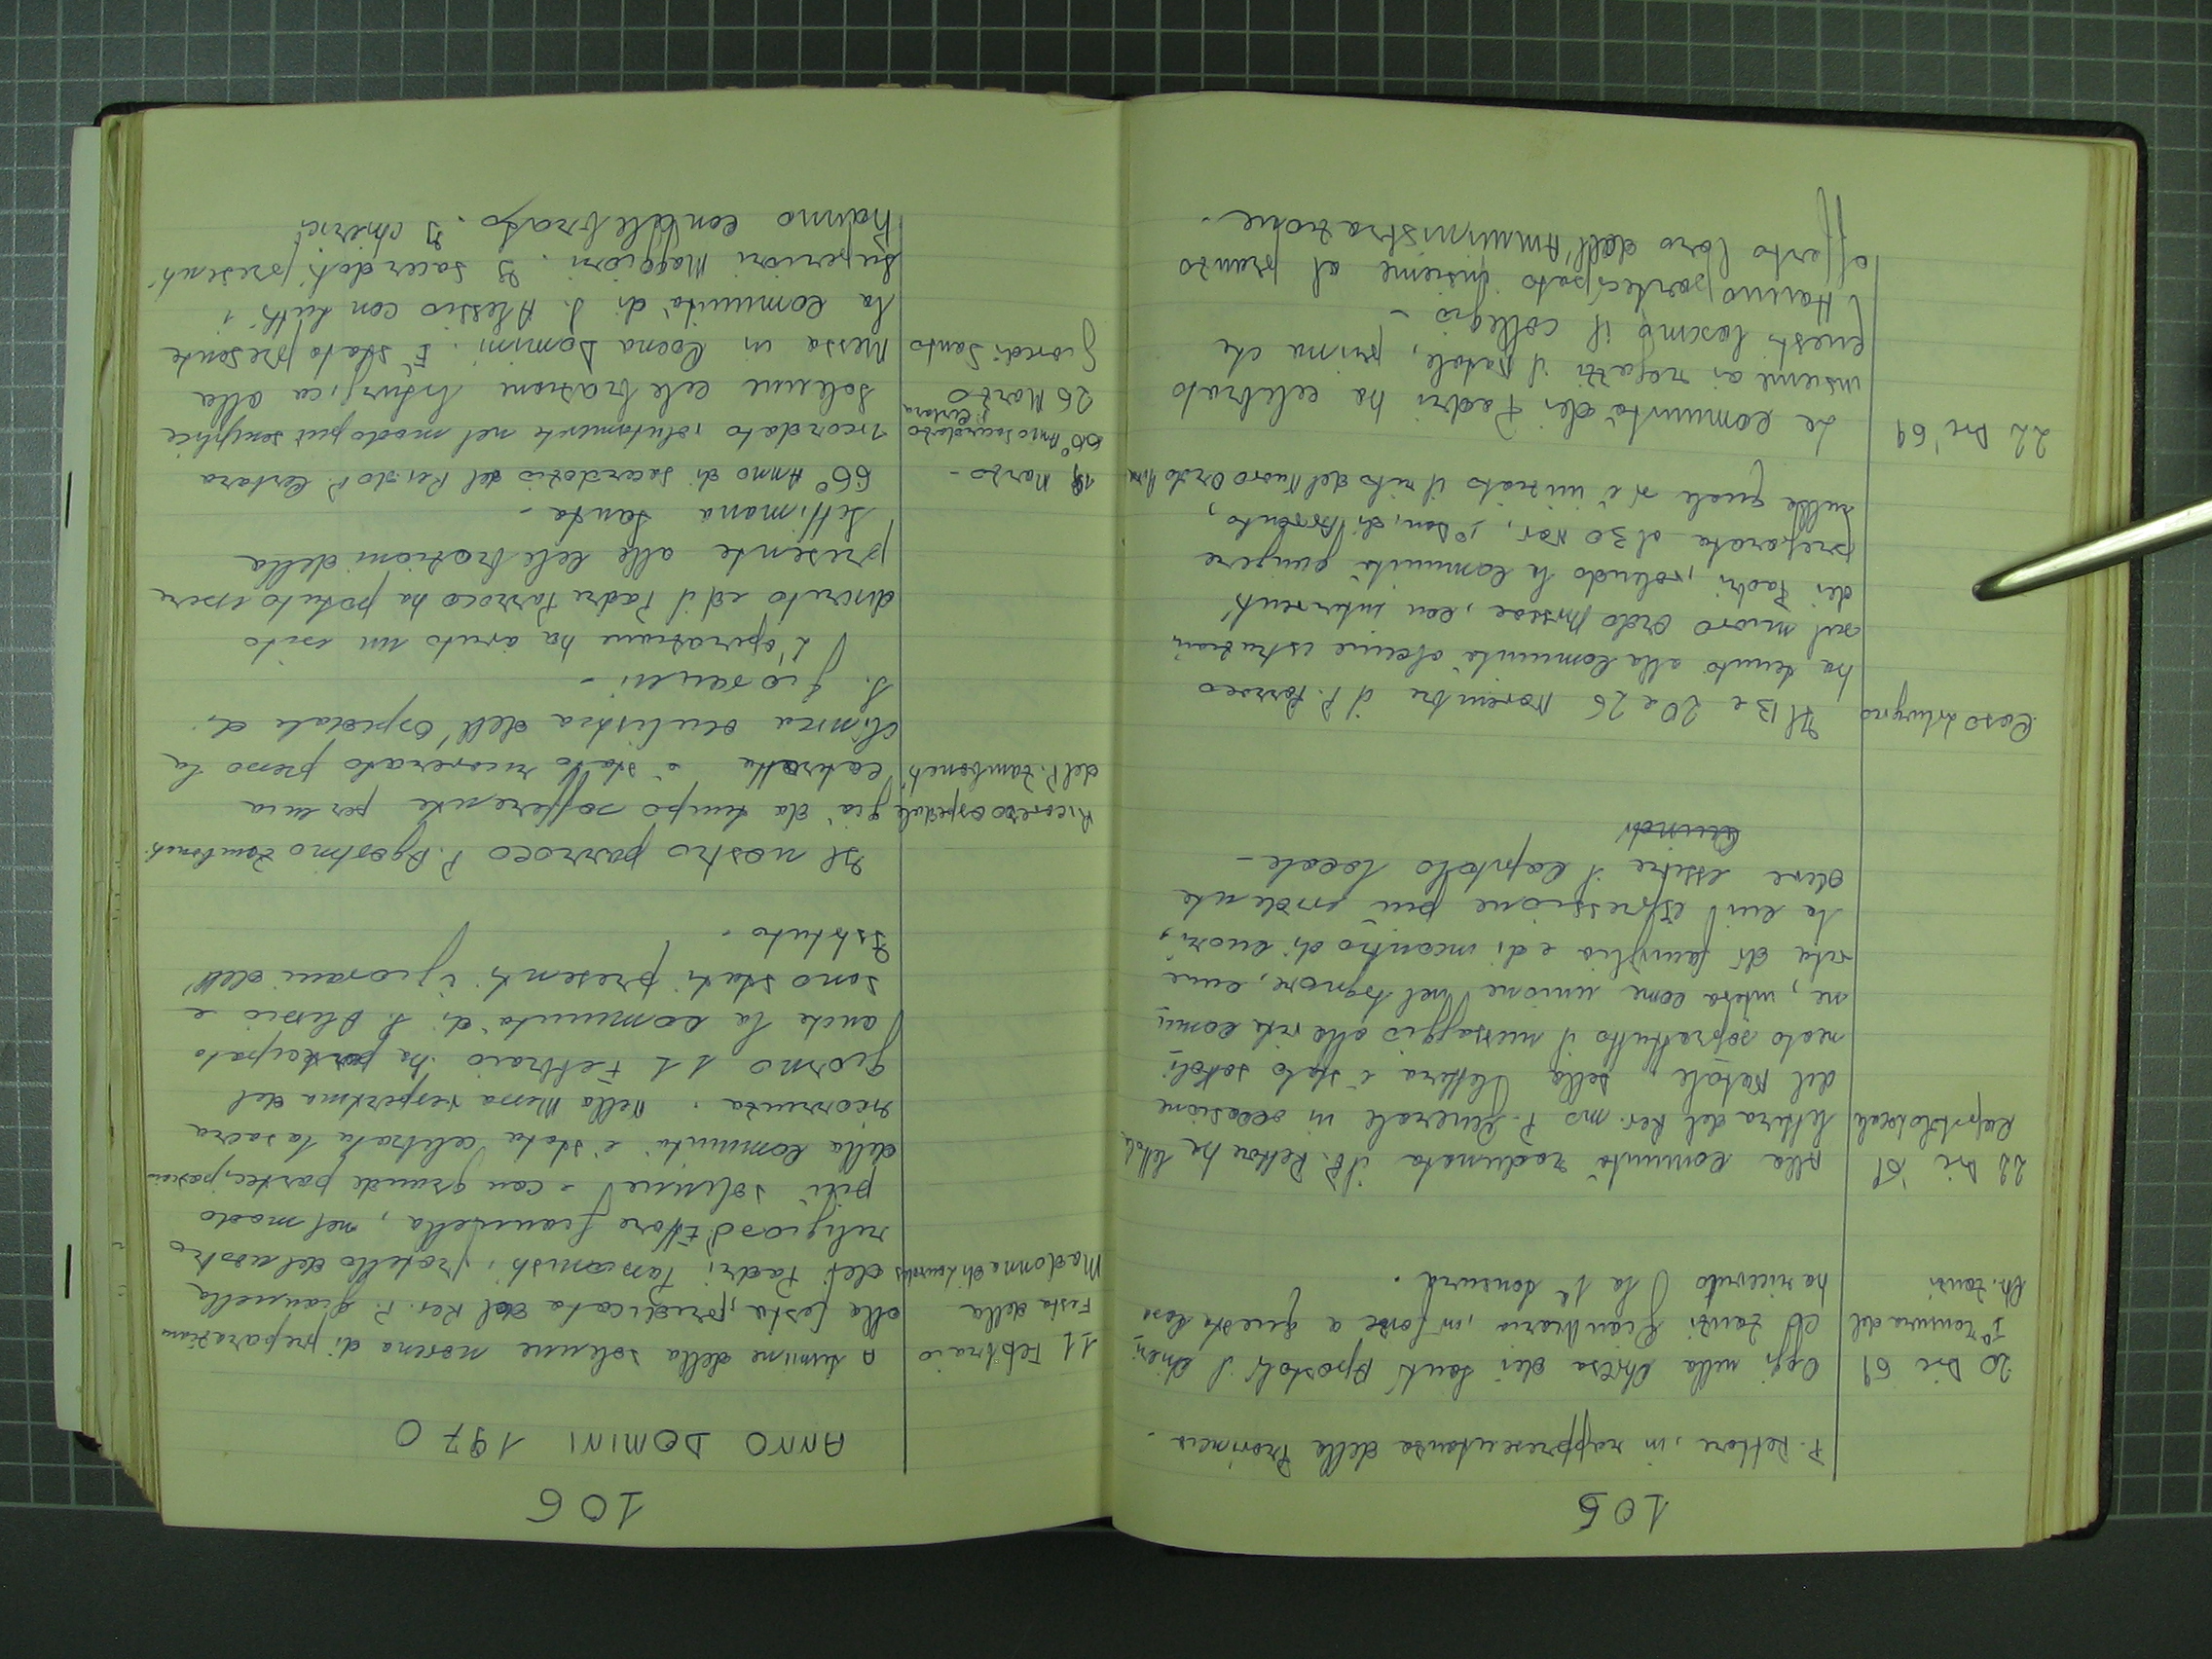 105
P. Rettore, in rappresentanza della Provincia -
20 Dic 69
1ª Tonsura del
Ch. Zanzi
Oggi nella Chiesa dei Santi Apostoli, I
Zanzi Gianmario, in forse a questa Casa
ha ricevuto la 1ª tonsura.
22 Dic '69
Capitolo locale
Alla Comunità radunata il P. Rettore ha letto la
lettera del Rev.mo P. Generale in occasione
del Natale. Nella lettera è stato sottoli
neato soprattutto il messaggio alla vita comu
ne, intesa come unione nel Signore, come
vita di famiglia e di incontro di cuori,
la cui espressione più evidente
deve essere il Capitolo locale -
Quindi
Caso Liturgico
Il 13 e 20 e 26 Novembre il P. Parroco
ha tenuto alla Comunità alcune istruzioni
sul nuovo Ordo Missae, con interventi
dei Padri, volendo la Comunità giungere
preparata al 30 Nov, 1ª Dom. di Avvento,
nella quale si è iniziato il rito del Nuovo Ordo Missae
22 Dic '69
La Comunità dei Padri ha celebrato
insieme ai ragazzi il Natale, prima che
questi lascino il collegio -
Hanno partecipato insieme al pranzo
offerto loro dall'Amministrazione -
106
ANNO DOMINI 1970
11 Febbraio
Festa della
Madonna di Lourdes
A termine della solenne novena di preparazione
alla festa, predicata dal Rev. P. Giannella
dei Padri Passionisti, fratello del nostro
religioso Ettore Giannella, nel modo
più solenne e con grande partecipazione
della Comunità è stata celebrata la sacra
ricorrenza. Nella Messa vespertina del
giorno 11 Febbraio ha partecipato
anche la Comunità di S. Alessio e
sono stati presenti i giovani dell'
Istituto.
Ricovero ospedale
del P. Zambonati
Il nostro parroco P. Agostino Zambonati
già da tempo sofferente per una
cateratta è stato ricoverato presso la
clinica oculistica dell'Ospedale di
S. Giovanni -
L'operazione ha avuto un esito
discreto ed il Padre Parroco ha potuto essere
presente alle Celebrazioni della
Settimana Santa -
Marzo -
66° Anno sacerdozio
P. Cerbara
66° Anno di sacerdozio del Rev.do P. Cerbara
ricordato volutamente nel modo più semplice
26 Marzo
Giovedì Santo
Solenne celebrazione liturgica alla
Messa in Coena Domini. È stata presente
la Comunità di S. Alessio con tutti i
Superiori Maggiori. I sacerdoti presenti
hanno concelebrato. I chierici